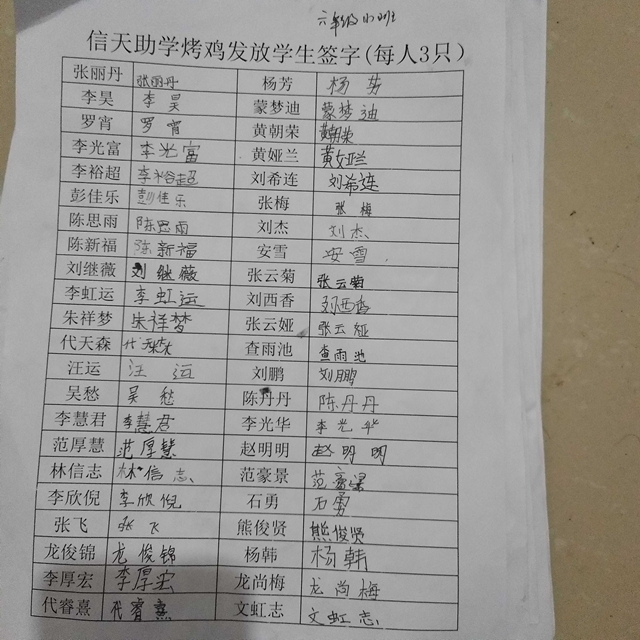 六年级小班
信天助学烤鸡发放学生签字(每人3只)
张丽丹 张丽丹 杨芳 杨芳
李昊 李昊 蒙梦迪 蒙梦迪
罗宵 罗宵 黄朝荣 黄朝荣
李光富 李光富 黄娅兰 黄娅兰
李裕超 李裕超 刘希连 刘希连
彭佳乐 彭佳乐 张梅 张梅
陈思雨 陈思雨 刘杰 刘杰
陈新福 陈新福 安雪 安雪
刘继薇 刘继薇 张云菊 张云菊
李虹运 李虹运 刘西香 刘西香
朱祥梦 朱祥梦 张云娅 张云娅
代天森 代天森 查雨池 查雨池
汪运 汪运 刘鹏 刘鹏
吴愁 吴愁 陈丹丹 陈丹丹
李慧君 李慧君 李光华 李光华
范厚慧 范厚慧 赵明明 赵明明
林信志 林信志 范豪景 范豪景
李欣倪 李欣倪 石勇 石勇
张飞 张飞 熊俊贤 熊俊贤
龙俊锦 龙俊锦 杨韩 杨韩
李厚宏 李厚宏 龙尚梅 龙尚梅
代睿熹 代睿熹 文虹志 文虹志